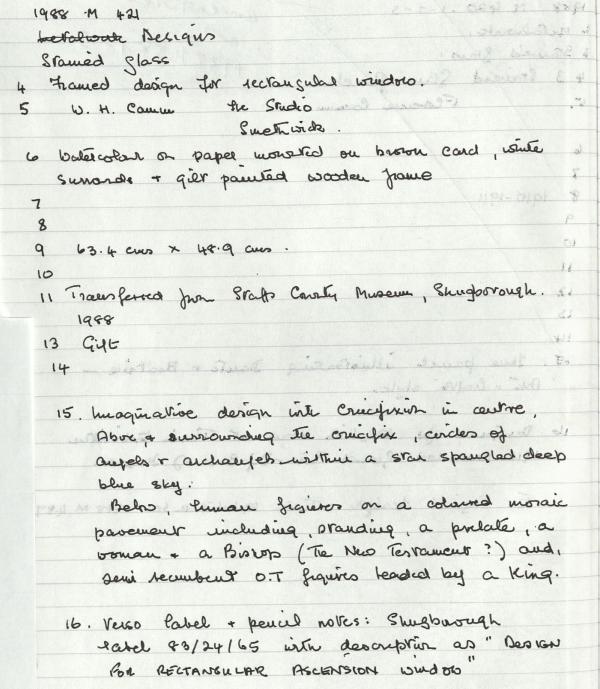 1988 M 421
Metalwork Designs
Stained glass
4 Framed design for rectangular window.
5 W. H. Camm the Studio
Smethwick.
6 Watercolour on paper mounted on brown card, white
surrounds + gilt painted wooden frame
7
8
9 63.4 cms x 48.9 cms.
10
11 Transferred from Staffs County Museum, Shugborough.
1988
13 Gift
14
15. Imaginative design with crucifixion in centre.
Above & surrounding the crucifix, circles of
angels & archangels within a star spangled deep
blue sky.
Below human figures on a coloured mosaic
pavement including, standing, a prelate, a
woman + a Bishop (The New Testament?) and,
semi recumbent O.T figures headed by a King.
16. Verso label + pencil notes: Shugborough
label 83/24/65 with description as "DESIGN
FOR RECTANGULAR ASCENSION window"